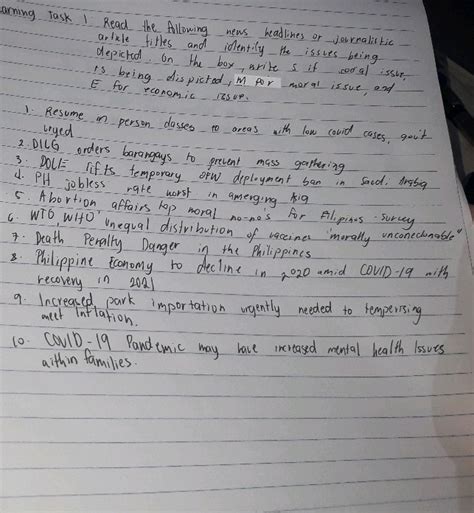 arning Task 1 Read the following news headlines or journalistic
article titles and identify the issues being
depicted. On the box, write S if social issue,
is being dispicted, M por moral issue, and
E for economic issue.
1. Resume in person classes to areas with low covid cases, gov't
urged
2. DILG orders barangays to prevent mass gathering
3. DOLE lifts temporary OFW deployment ban in Saudi Arabia
4. PH jobless rate worst in emerging Asia
5. Abortion, affairs top moral no-nos for Filipinos - survey
6. WTO WHO 'unequal distribution of vaccines "morally unconscionable"
7. Death Penalty Danger in the Philippines
8. Philippine Economy to decline in 2020 amid COVID-19 with
recovery in 2021
9. Increased pork importation urgently needed to
meat Inflation.
10. COVID-19 Pandemic may have increased mental health Issues
within families.